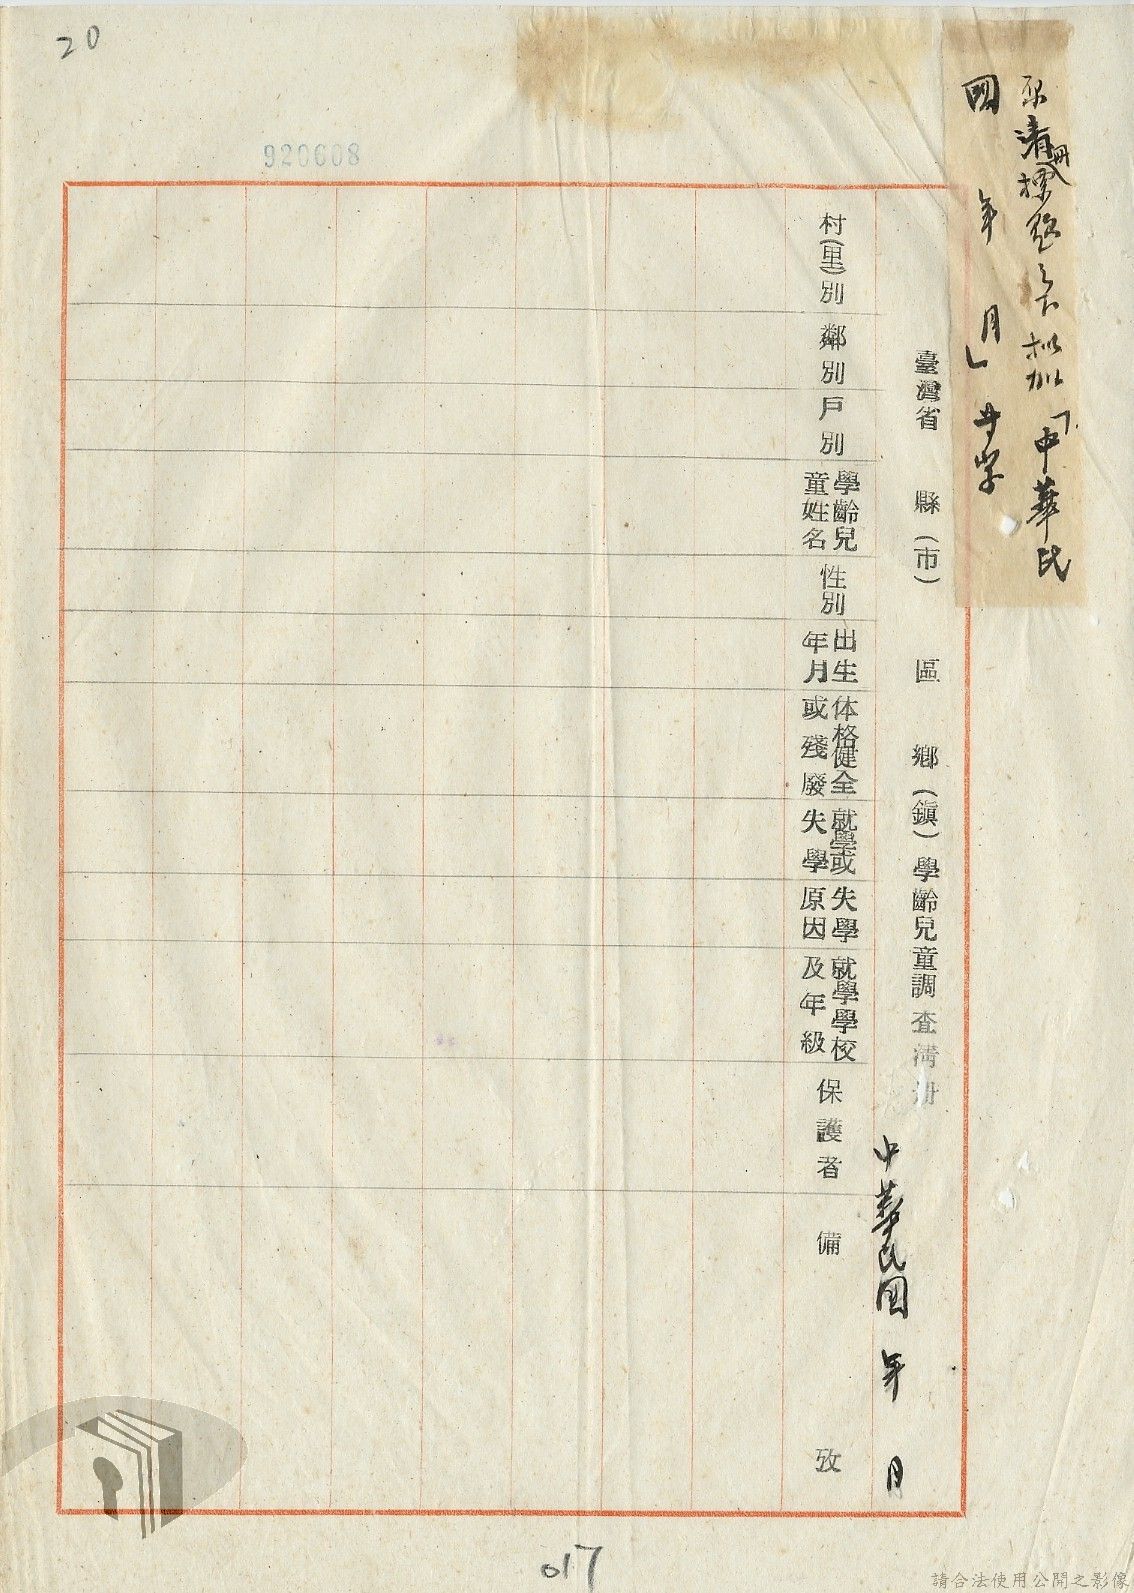 20
920608
清册標題之下擬加「中華民
國 年 月」等字
臺灣省 縣(市) 區 鄉(鎮)學齡兒童調查清册
中華民國 年 月
村(里)別
鄰別
戶別
學齡兒
童姓名
性別
出生
年月
体格健全
或殘廢
就學或
失學
失學
原因
就學學校
及年級
保護者
備攷
017
請合法使用公開之影像